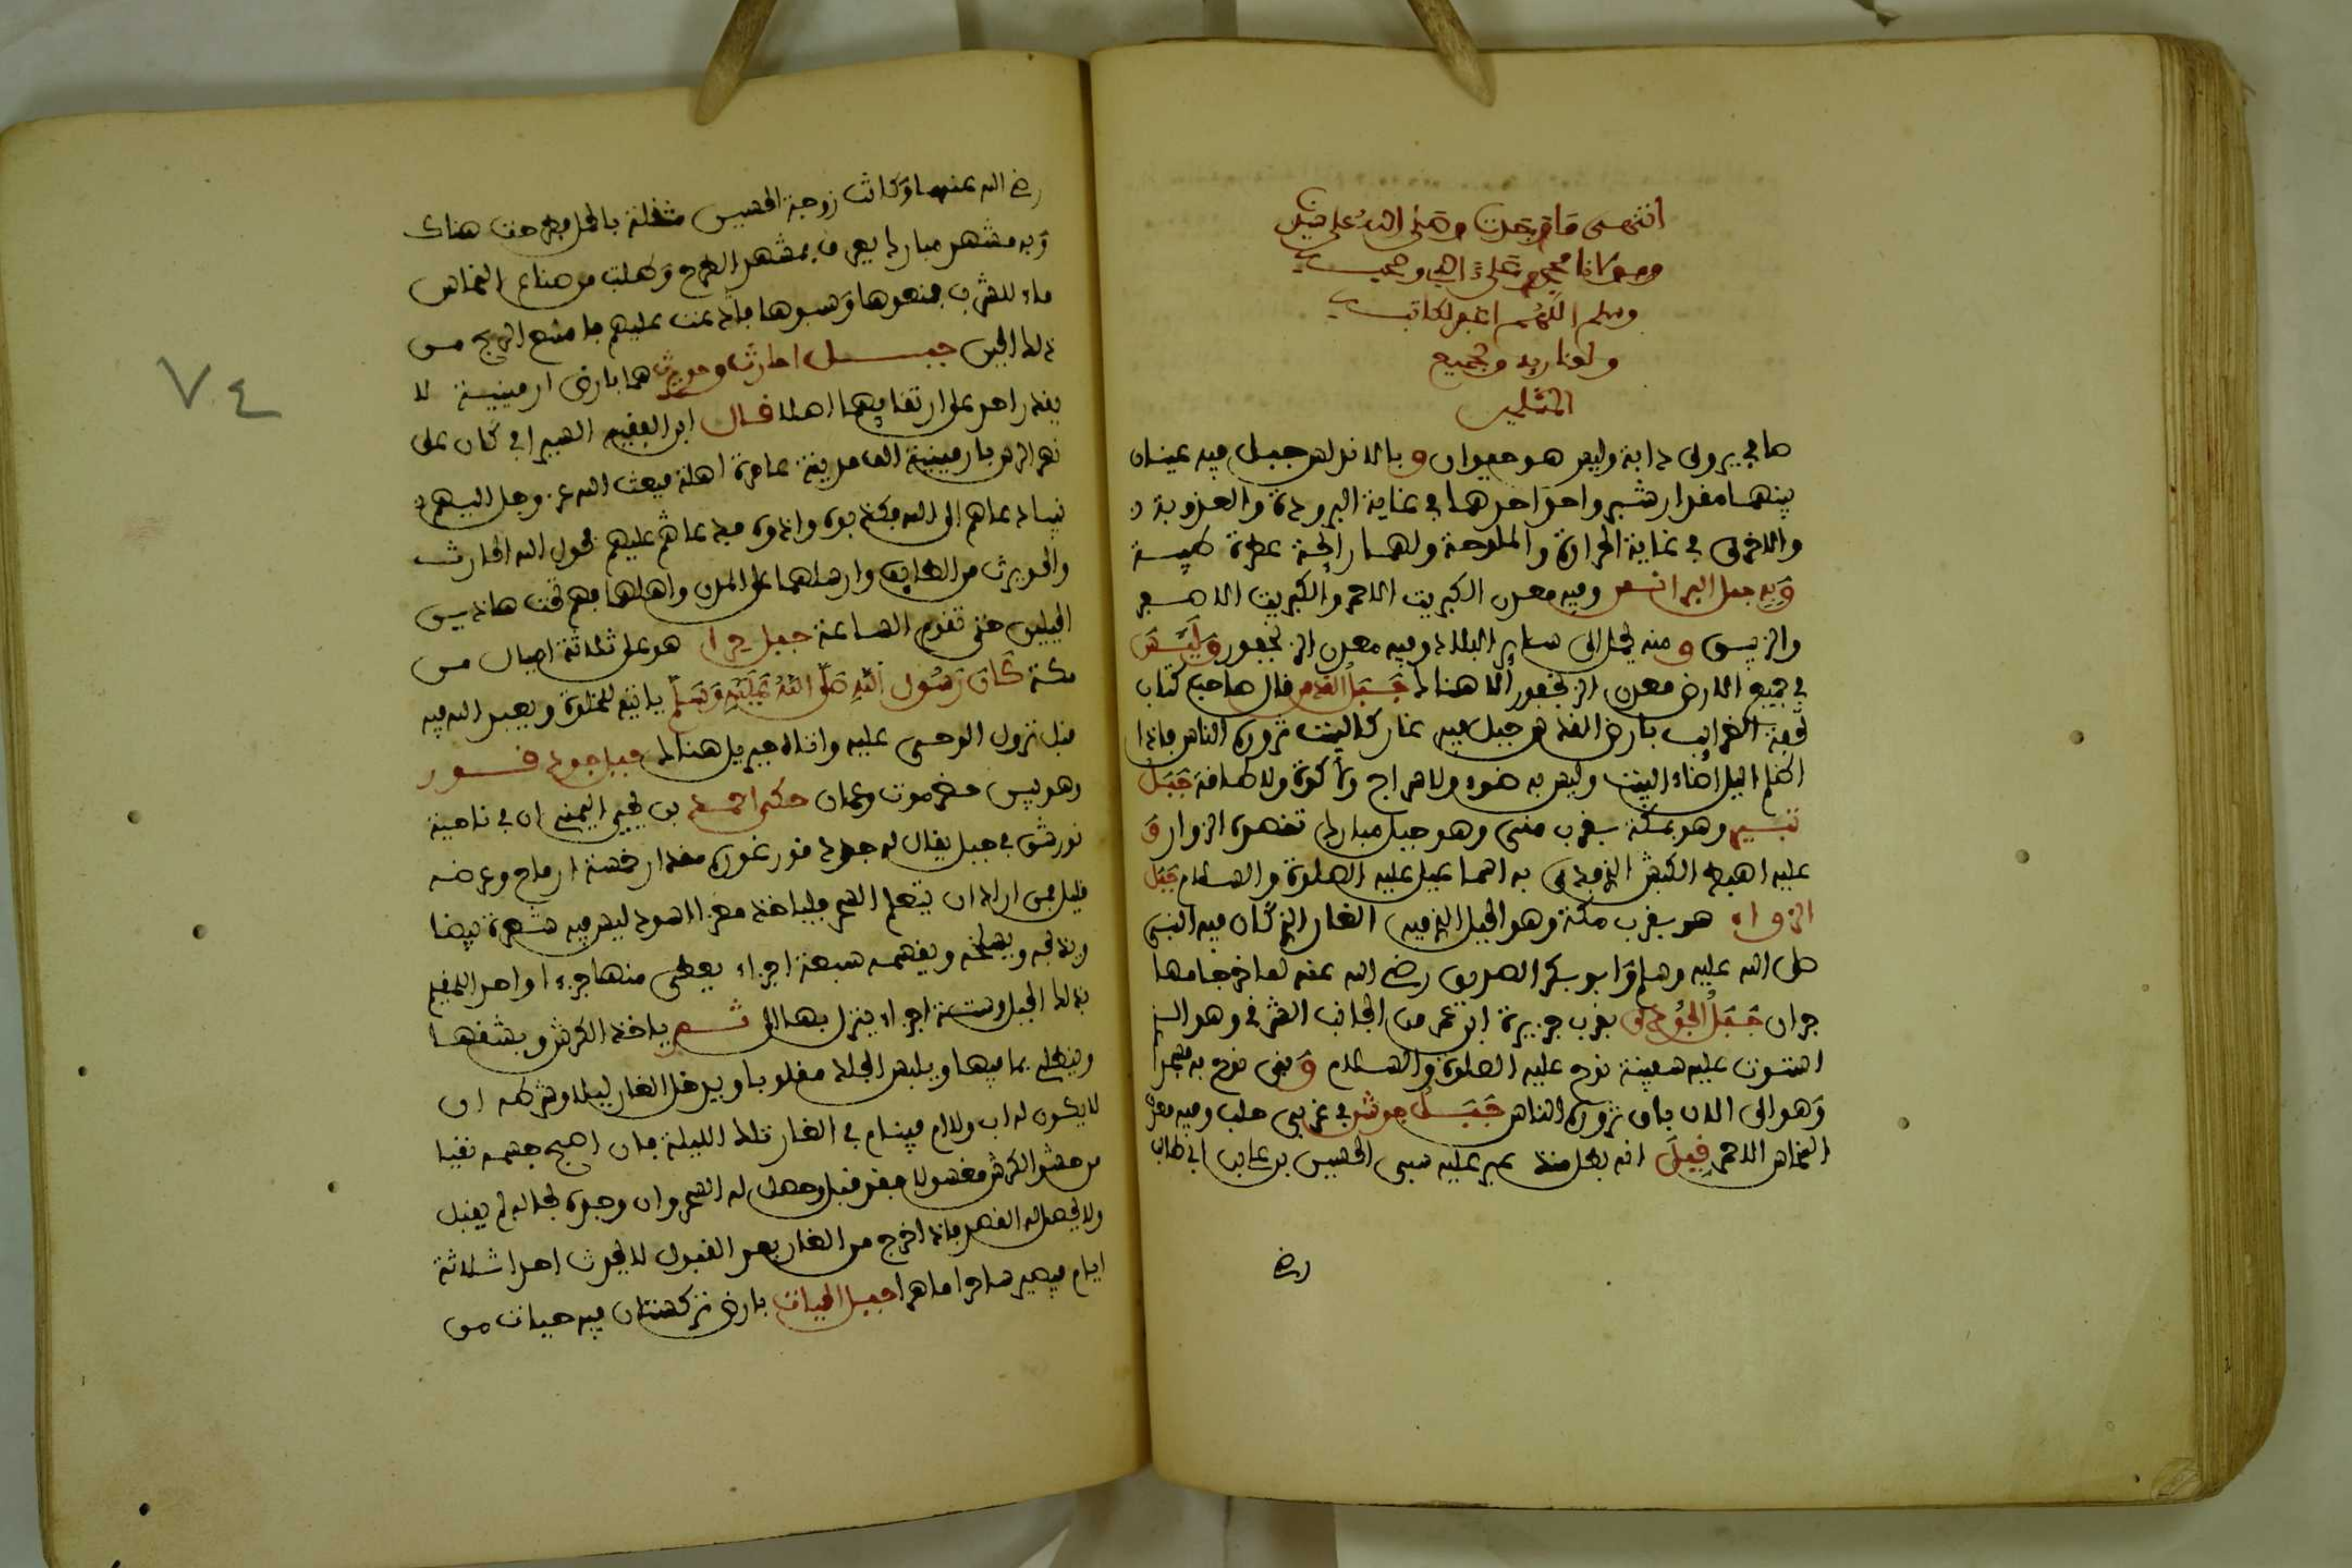 انتهى ما وجدت وصلى الله على سيدنا
ومولانا محمد وعلى اله وصحبه
وسلم اللهم اغفر لكاتبه
ولقاريه ولجميع
المسلمين
ما يجير ولى دابة وليس هو حيوان وبالاندلس جبل فيه عينان
بينهما مقدار شبر واحد احدهما في غاية البرودة والعذوبة
والاخرى في غاية الحرارة والملوحة ولهما رائحة عطرة طيبة
وبه جبل البرانس وفيه معدن الكبريت الاحمر والكبريت الاصفر
والزيبق ومنه يحمل الى ساير البلاد وفيه معدن الزنجفور وليس
في جميع الارض معدن الزنجفور الا هنالك جبل القدس قال صاحب كتاب
تحفة الغرايب بارض القدس جبل فيه غار كالبيت تزوره الناس فاذا
اظلم اليل اضاء البيت وليس به ضوء ولا سراج ولا كوة ولا طاقة جبل
ثبير وهو بمكة بقرب منى وهو جبل مبارك تقصده الزوار و
عليه اهبط الكبش الذي فدى به اسماعيل عليه الصلوة والسلام جبل
هو بقرب مكة وهو الجبل الذي فيه الغار الذي كان فيه النبي
صلى الله عليه وسلم وابو بكر الصديق رضي الله عنه لما خرجا مهاـ
جران جبل الجودي بقرب جزيرة ابن عمر من الجانب الشرقي وهو الذي
استوت عليه سفينة نوح عليه الصلوة والسلام وبنى نوح به مسجدا
وهو الى الان باق تزوره الناس جبل جوشن في غربي حلب وفيه معدن
النحاس الاحمر قيل انه بطل منذ عبر عليه سبي الحسين بن على بن ابي طالب
رضي
رضي الله عنهما وكانت زوجة الحسين مثقلة بالحمل فطرحت هناك
وبه مشهد مبارك يعرف بمشهد الطرح وطلبت من صناع النحاس
ماء للشرب فمنعوها وسبوها فدعت عليهم فامتنع الربح من
ذلك الحين جبل الحارث وحويرث هما بارض ارمينية لا
يقدر احد على ارتقايهما اصلا قال ابن الفقيه السيرافي كان على
نهر الرس بارمينية الف مدينة عامرة اهلة فبعث الله عز وجل اليهم
نبيا دعاهم الى الله فكذبوه واذوه فدعا عليهم فحول الله الحارث
والحويرث من الطايف وارسلهما على المدن واهلها فهم تحت هاذين
الجبلين حتى تقوم الساعة جبل حرا هو على ثلاثة اميال من
مكة كان رسول الله صلى الله عليه وسلم ياتيه للخلوة ويعبد الله فيه
قبل نزول الوحي عليه واتاه جبريل هنالك جبل جود قور
وهو بين حضرموت وعمان حكى احمد بن يحيى اليمني ان في ناحية
في جبل يقال له جود قور غوره مقدار خمسة ارماح وعرضه
قليل فمن اراد ان يتعلم السحر فلياخذ معزا اسود ليس فيه شعرة بيضا
ويذبحه ويسلخه ويقسمه سبعة اجزاء يعطي منها جزءا واحدا للمقيم
بذلك الجبل وستة اجزاء ينزل بها الى ثم ياخذ الكرش ويشقها
ويطلى بما فيها ويلبس الجلد مقلوبا ويدخل الغار ليلا وشرطه ان
لا يكون له اب ولا ام فينام في الغار تلك الليلة فان اصبح جسمه نقيا
من حشو الكرش مغسولا فقد قبل وحصل له السحر وان وجده بحاله لم يقبل
ولا يحصل له القصد فاذا خرج من الغار بعد القبول لا يحدث احدا ثلاثة
ايام فيصير ساحرا ماهرا جبل الحيات بارض تركستان فيه حيات من
٧٤